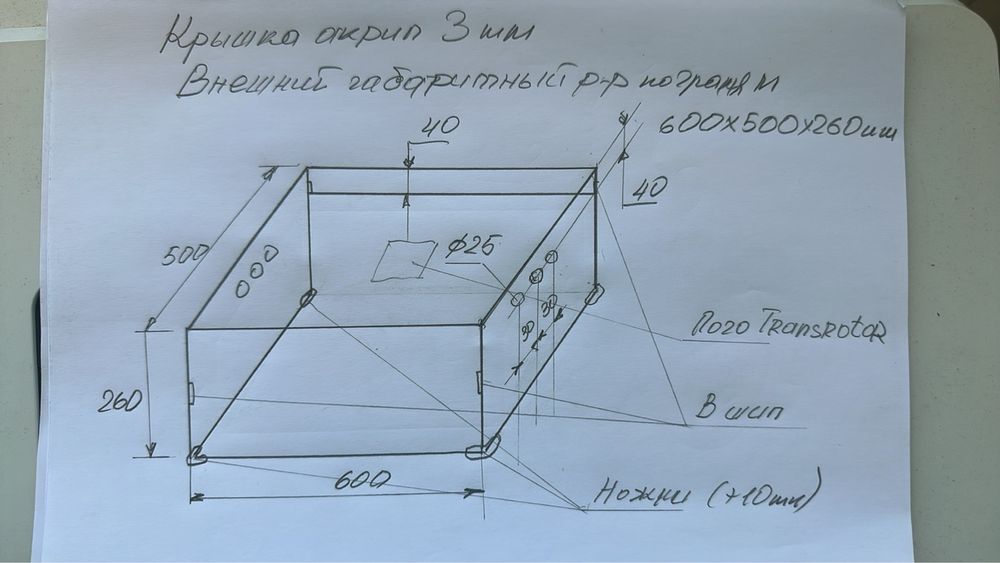 Крышка акрил 3мм
Внешний габаритный р-р по граням
600х500х260мм
40
40
500
Ф25
30
30
Лого Transrotor
260
В шип
600
Ножки (+10мм)